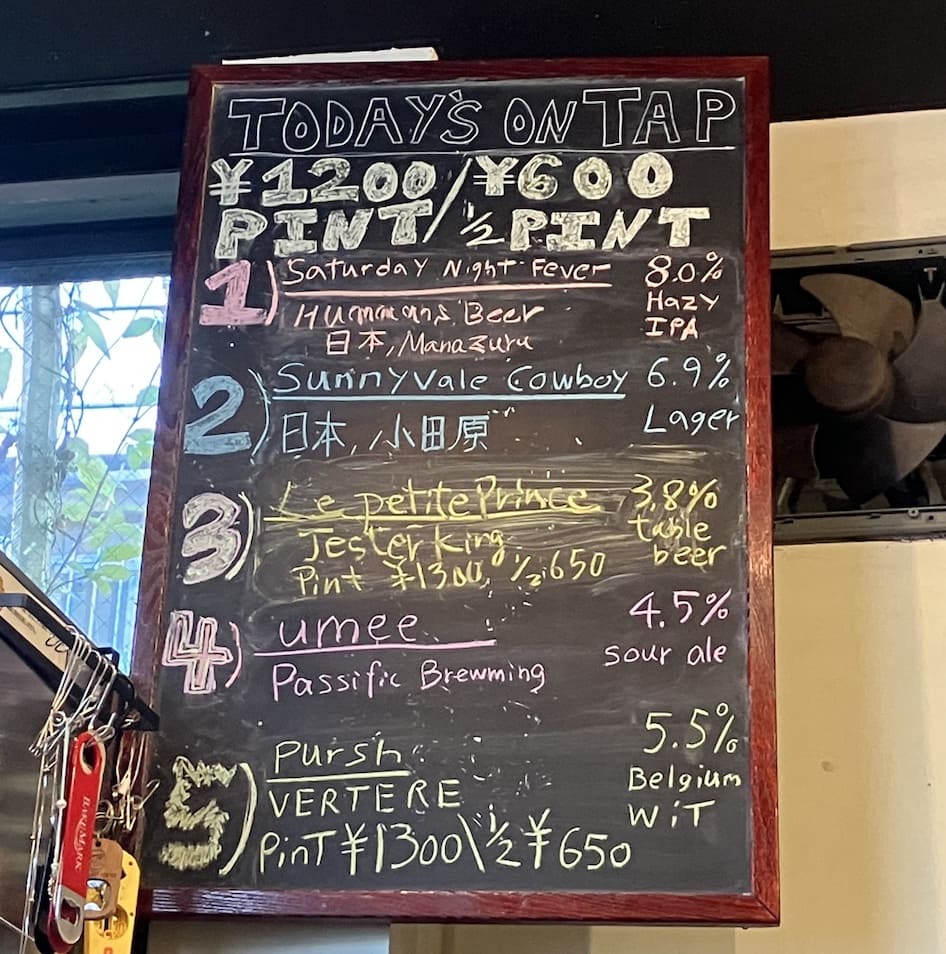 TODAY'S ON TAP
¥1200/¥600
PINT/½ PINT
1) Saturday Night Fever 8.0%
Hummans Beer Hazy
日本, Manazuru IPA
2) Sunnyvale Cowboy 6.9%
日本, 小田原 Lager
3) Le petite Prince 3.8%
Jester King table
Pint ¥1300, ½ 650 beer
4) umee 4.5%
Passific Brewming sour ale
5) Pursh 5.5%
VERTERE Belgium
WiT
PinT ¥1300\½ ¥650
BAKUMARK